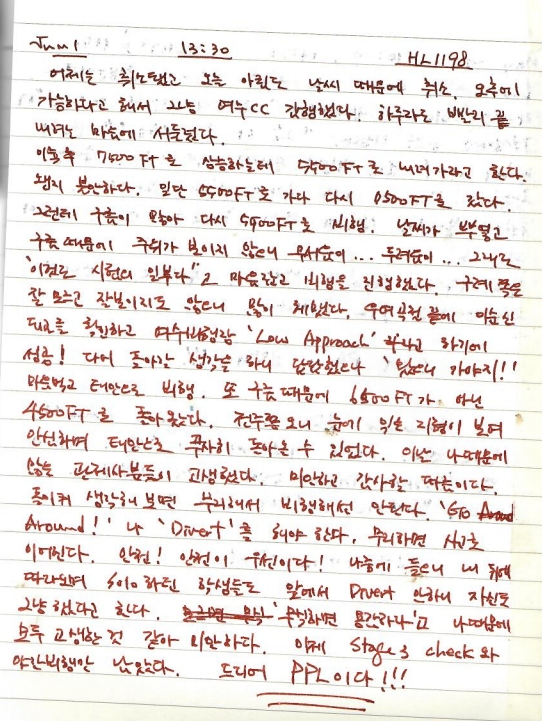 Jun 1 13:30 HL1198
어제는 취소됐고 오늘 아침도 날씨 때문에 취소. 오후에
가능하다고 해서 그냥 여수CC 강행했다. 하루라도 빨리 끝
내려는 마음에 서둘렀다.
이륙후 7500FT로 상승하는데 5500FT로 내려가라고 한다.
왠지 불안하다. 일단 5500FT로 가다 다시 8500FT로 갔다.
그런데 구름이 많아 다시 5500FT로 비행. 날씨가 뿌옇고
구름때문에 주위가 보이지 않으니 무서움이... 두려움이... 그래도
"이것도 시험의 일부다"고 마음잡고 비행을 진행했다. 구례쪽은
잘 모르고 잘보이지도 않으니 많이 헤맸다. 우여곡절 끝에 이순신
대교를 확인하고 여수비행장 'Low Approach' 하라고 하기에
성공! 다시 돌아갈 생각을 하니 답답했으나 '왔으니 가야지!'
마음먹고 태안으로 비행. 또 구름때문에 6500FT가 아닌
4500FT로 돌아왔다. 전주쯤 오니 눈에 익은 지형이 보여
안심하며 태안으로 무사히 돌아올 수 있었다. 이날 나때문에
많은 관제사분들이 고생했다. 미안하고 감사할 따름이다.
돌이켜 생각해 보면 무리해서 비행해선 안된다. 'Go
Around!' 나 'Divert'를 해야 한다. 무리하면 사고로
이어진다. 안전! 안전이 우선이다! 나중에 들으니 내 뒤에
따라오며 Solo하던 학생들도 앞에서 Divert 안하니 자신도
그냥 했다고 한다. '무식하면 용감하다'고 나때문에
모두 고생한 것 같아 미안하다. 이제 Stage 3 check와
야간비행만 남았다. 드디어 PPL이다!!!